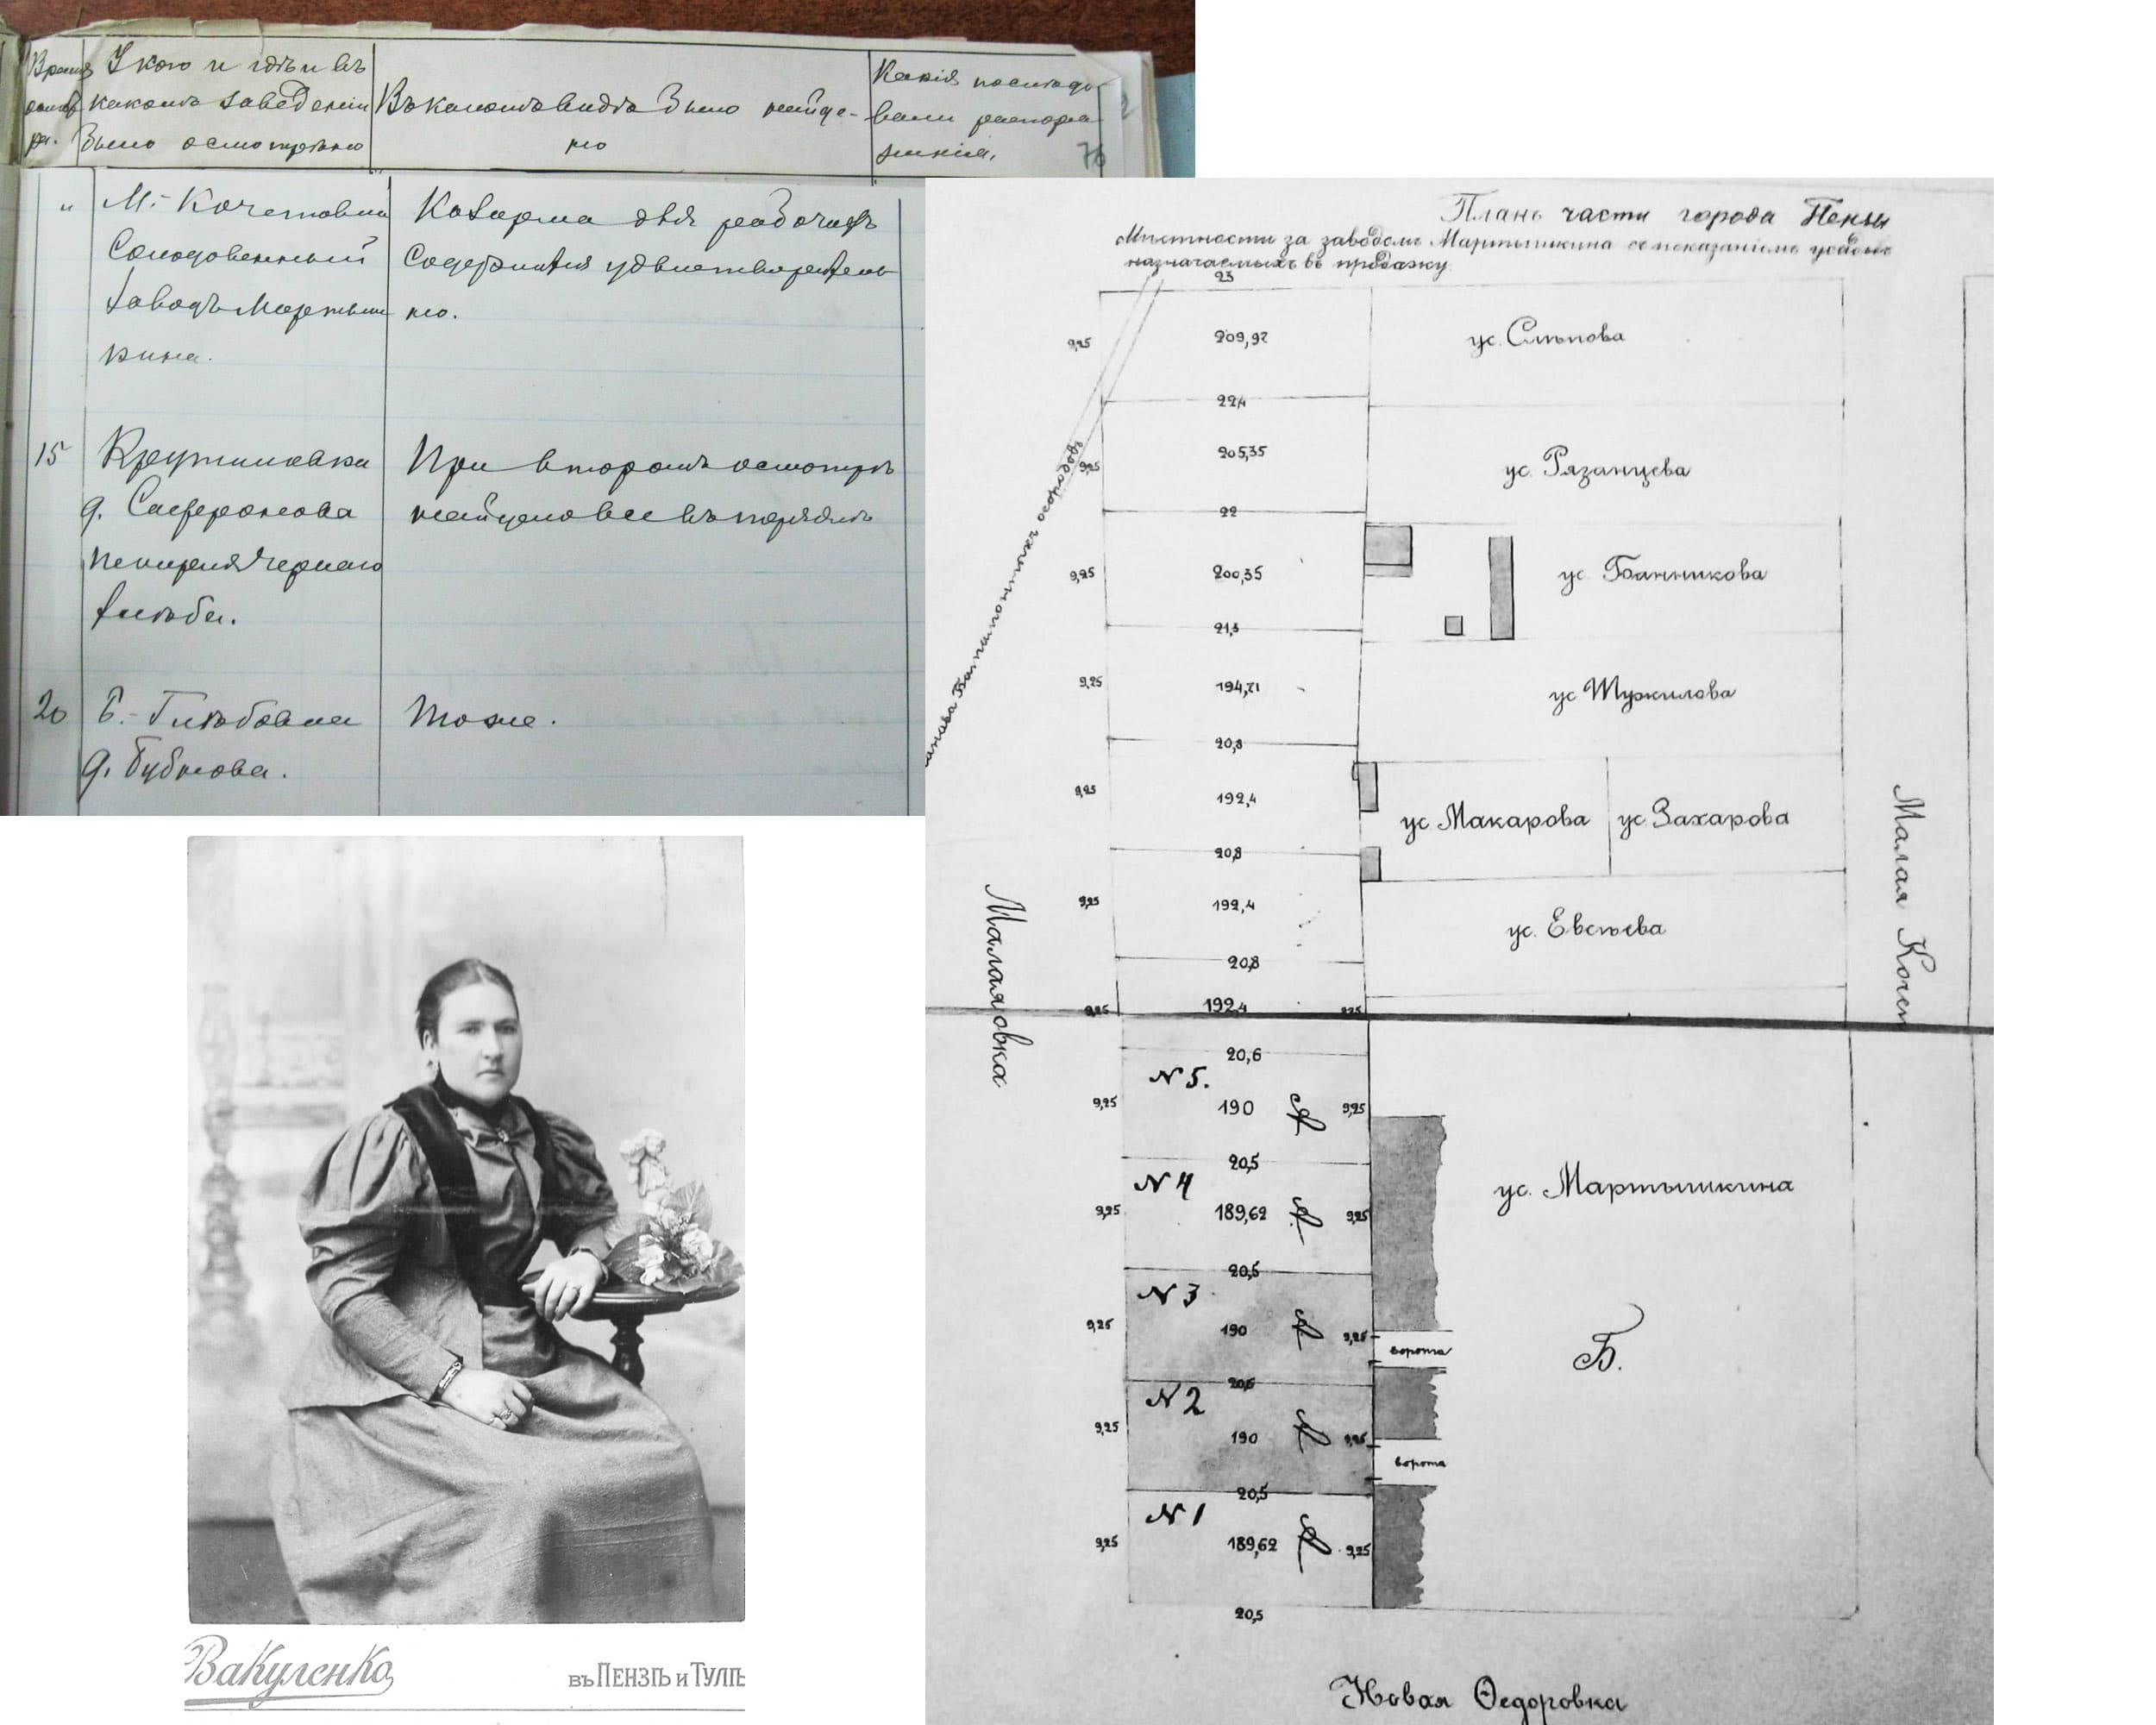 Время
осмот
ра.
У кого и гдѣ и въ
какомъ заведеніи
было осмотрѣно
Въ какомъ видѣ было найде-
но
Какія послѣдо-
вали распоря
женія.
76
"
М.- Кочетовка
Солодовенный
заводъ Марты
кина.
Казарма для рабочихъ
Содержится удвлетворитель
но.
15
д. Сафронова
пекарня чернаго
хлѣба.
При второмъ осмотрѣ
найдено все въ порядкѣ
20
Б.-
д. Бубнова.
Тоже.
Планъ части города Пензы
Мѣстности за заводомъ Мартышкина съ показаніемъ усадьбъ
назначаемыхъ въ продажу
23
9,25
209,92
ус. Слѣпова
22,4
9,25
205,35
ус. Рязанцева
22
9,25
200,35
ус. Банникова
21,3
9,25
194,71
20,8
9,25
192,4
ус. Макарова
ус. Захарова
20,8
9,25
192,4
ус. Евсѣева
20,8
9,25
192,4
9,25
канава Капустныхъ огородовъ
Малая
овка
Малая Кочет
20,6
N 5.
9,25
190
9,25
20,5
N 4
9,25
189,62
9,25
ус. Мартышкина
20,5
N 3
9,25
190
9,25
ворота
Б.
20,6
N 2
9,25
190
9,25
ворота
20,5
N 1
9,25
189,62
9,25
20,5
Новая Ѳедоровка
Вакуленко
въ ПЕНЗѢ и ТУЛѢ